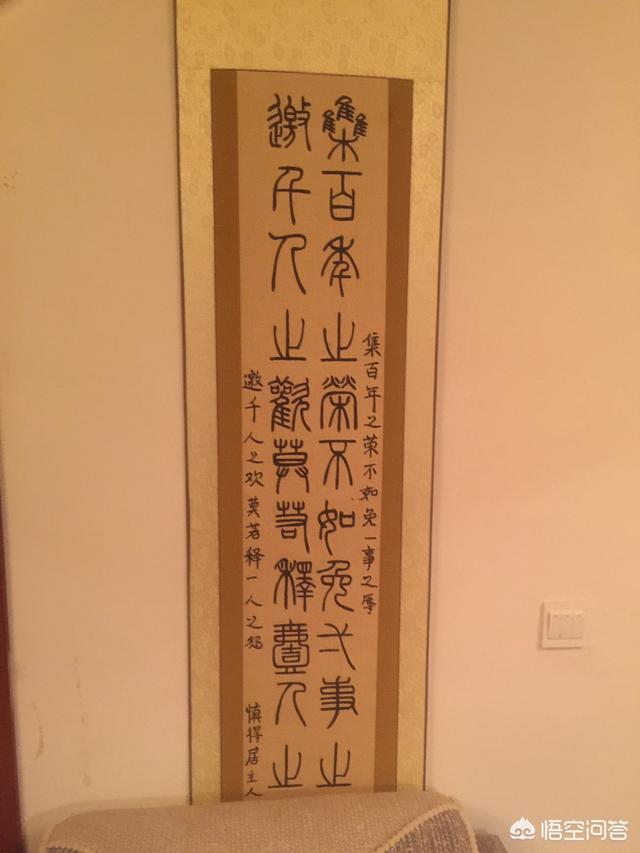 集百年之荣不如免一事之辱
雧百年之榮不如免弌事之
邀千人之歡莫若釋壹人之
邀千人之欢莫若释一人之怨
慎得居主人
悟空问答